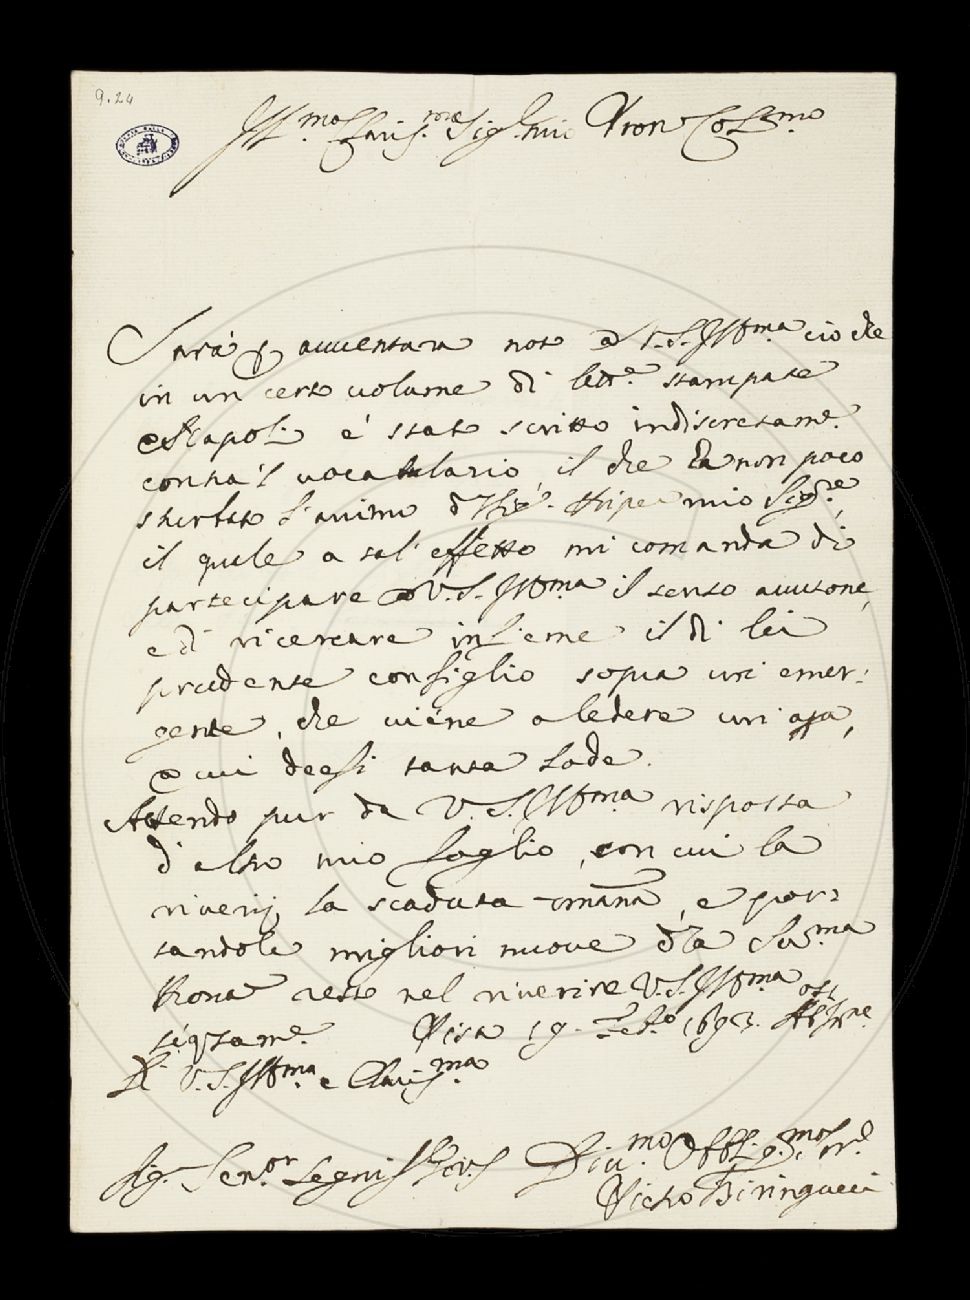 9.24
Ill.mo Clariss.mo Sig.re mio Pron Col.mo
Sarà p avventura noto a V.S. Ill.ma ciò che
in un certo volume di lett.e stampate
a Napoli è stato scritto indiscretam.e
contra 'l vocabulario, il che ha non poco
sturbato l'animo d
mio Sig.re,
il quale a tal effetto mi comanda di
partecipare a V.S. Ill.ma il senso avutone,
e di ricercare insieme il di lei
prudente consiglio sopra un emer-
gente, che viene a ledere un opa,
a cui deesi tanta lode.
Attendo pur da V.S. Ill.ma risposta
d'altro mio foglio, con cui la
riverij la scaduta 7mana, e por-
tandole migliori nuove dla Ser.ma
Prona resto nel riverire V.S. Ill.ma
Pisa 19. 1693.
Di V.S. Ill.ma e Clariss.ma
Sig. Sen.or Segni
Div.mo Obblig.mo Ser.
Pietro Biringucci